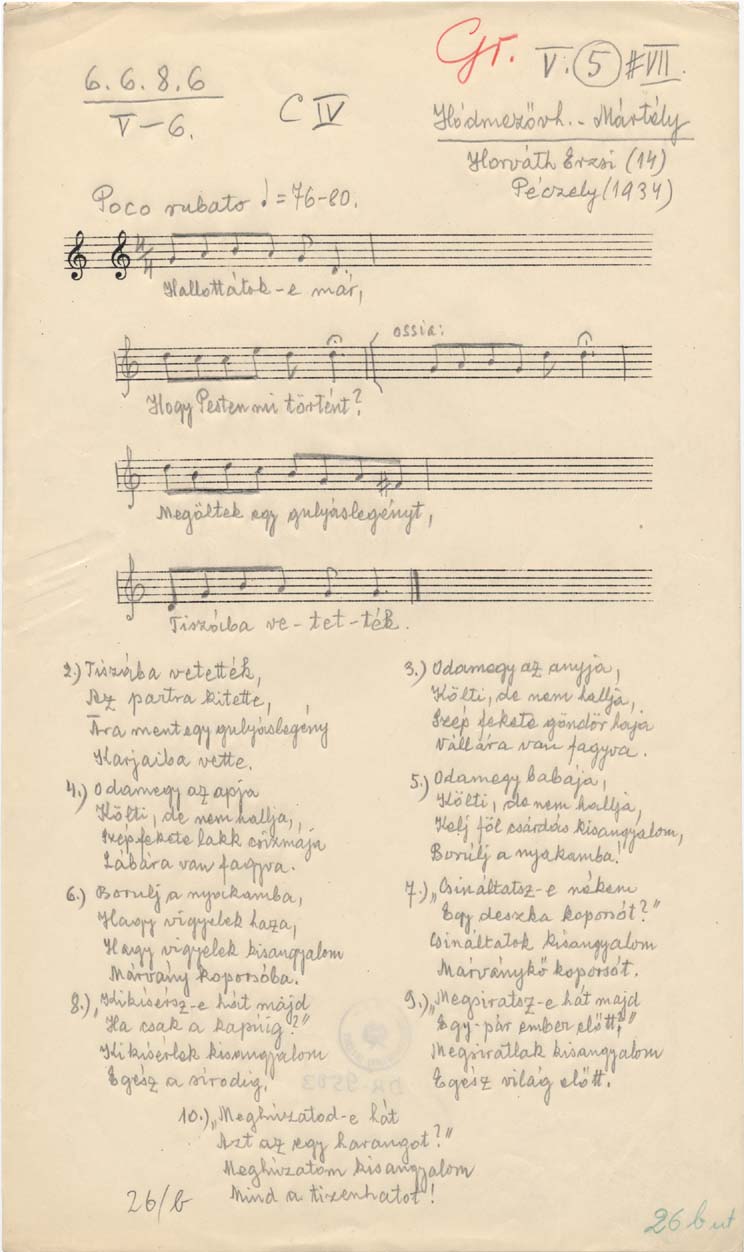 6. 6. 8. 6
V-6.
C IV
Gr.
V. 5 #VII.
Hódmezővh. - Mártély
Horváth Erzsi (14)
Péczely (1934)
Poco rubato ♩=76-80.
4/4
Hallottátok-e már,
ossia:
Hogy Pesten mi történt?
Megöltek egy gulyáslegényt,
Tiszába ve-tet-ték.
2.) Tiszába vetették,
Az partra kitette,
Arra ment egy gulyáslegény
Karjaiba vette.
3.) Odamegy az anyja,
Költi, de nem hallja,
Szép fekete göndör haja
Vállára van fagyva.
4.) Odamegy az apja
Költi, de nem hallja,
Szép fekete lakk csizmája
Lábára van fagyva.
5.) Odamegy babája,
Költi, de nem hallja,
Kelj föl csárdás kisangyalom,
Borúlj a nyakamba!
6.) Borulj a nyakamba,
Hagy vigyelek haza,
Hagy vigyelek kisangyalom
Márvány koporsóba.
7.) „Csináltatsz-e nékem
Egy deszka koporsót?"
Csináltatok kisangyalom
Márványkő koporsót.
8.) „Kikísérsz-e hát májd
Ha csak a kapúig?"
Kikísérlek kisangyalom
Egész a sírodig.
9.) „Megsiratsz-e hát majd
Egy-pár ember előtt?"
Megsiratlak kisangyalom
Egész világ előtt.
10.) „Meghúzatod-e hát
Azt az egy harangot?"
Meghúzatom kisangyalom
Mind a tizenhatot!
26/b
26 b ut